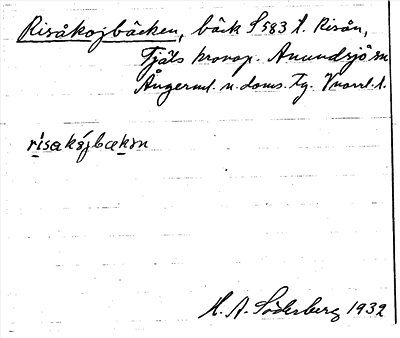 Risåkojbäcken, bäck S 583 t. Risån,
Tjäls kronop. Anundsjö sn
Ångerml. n. doms. tg. Vnorrl. l.
risakǫjbækən
H. A. Söderberg 1932